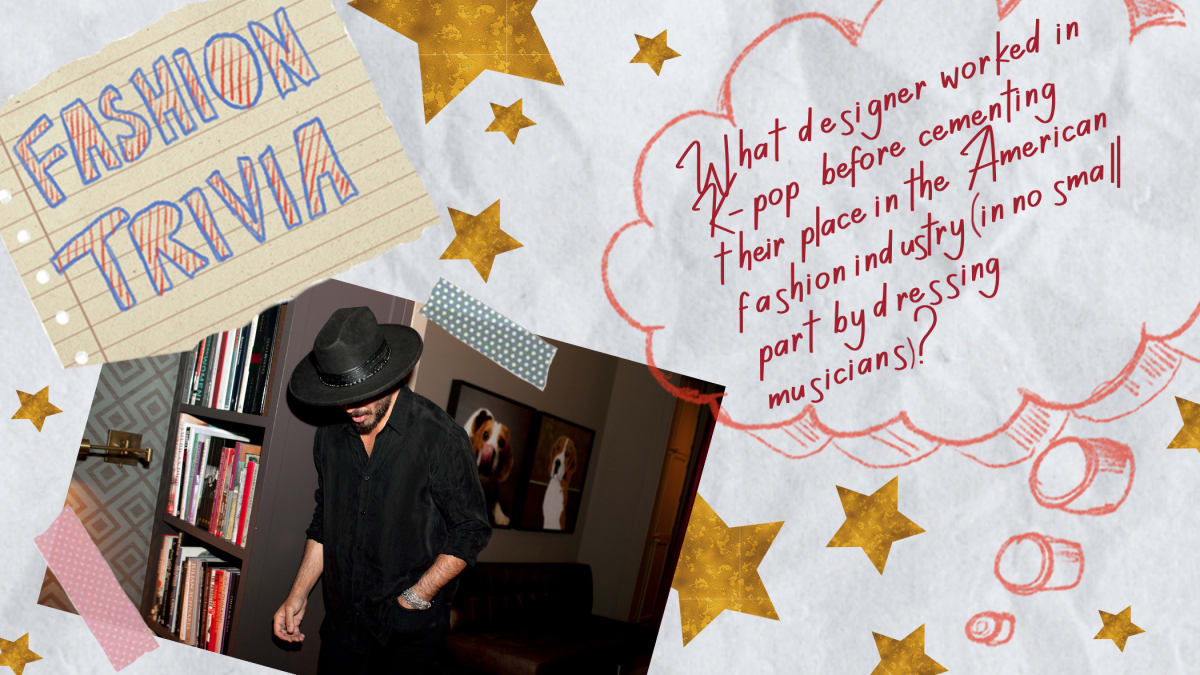 FASHION
TRIVIA
What designer worked in
K-pop before cementing
their place in the American
fashion industry (in no small
part by dressing
musicians)?